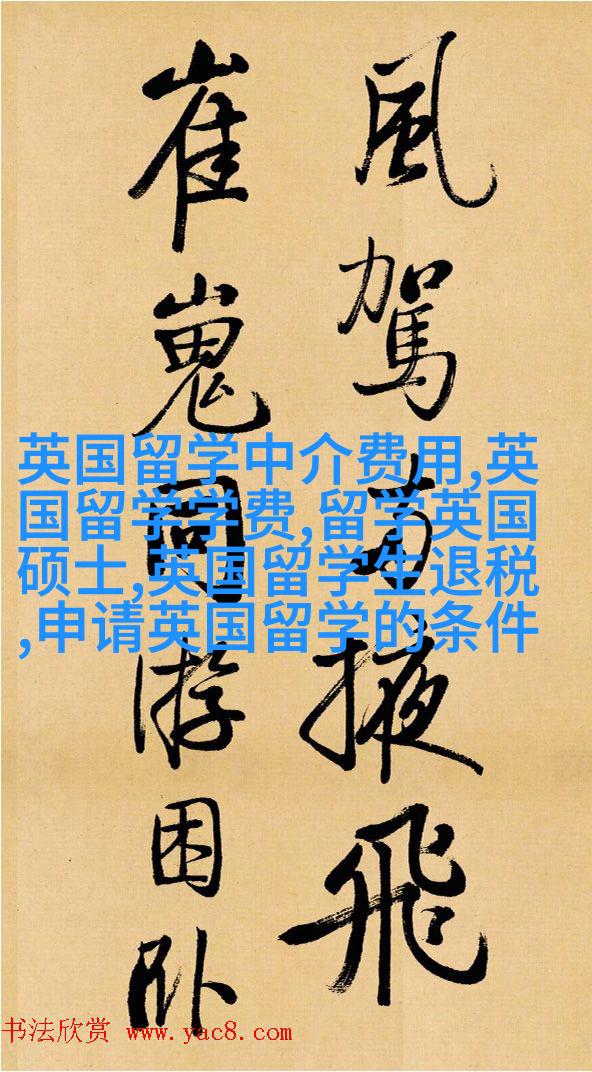 風駕兩掖飛
崔嵬同游困卧
英国留学中介费用,英
国留学学费,留学英国
硕士,英国留学生退税
,申请英国留学的条件
书法欣赏 www.yac8.com